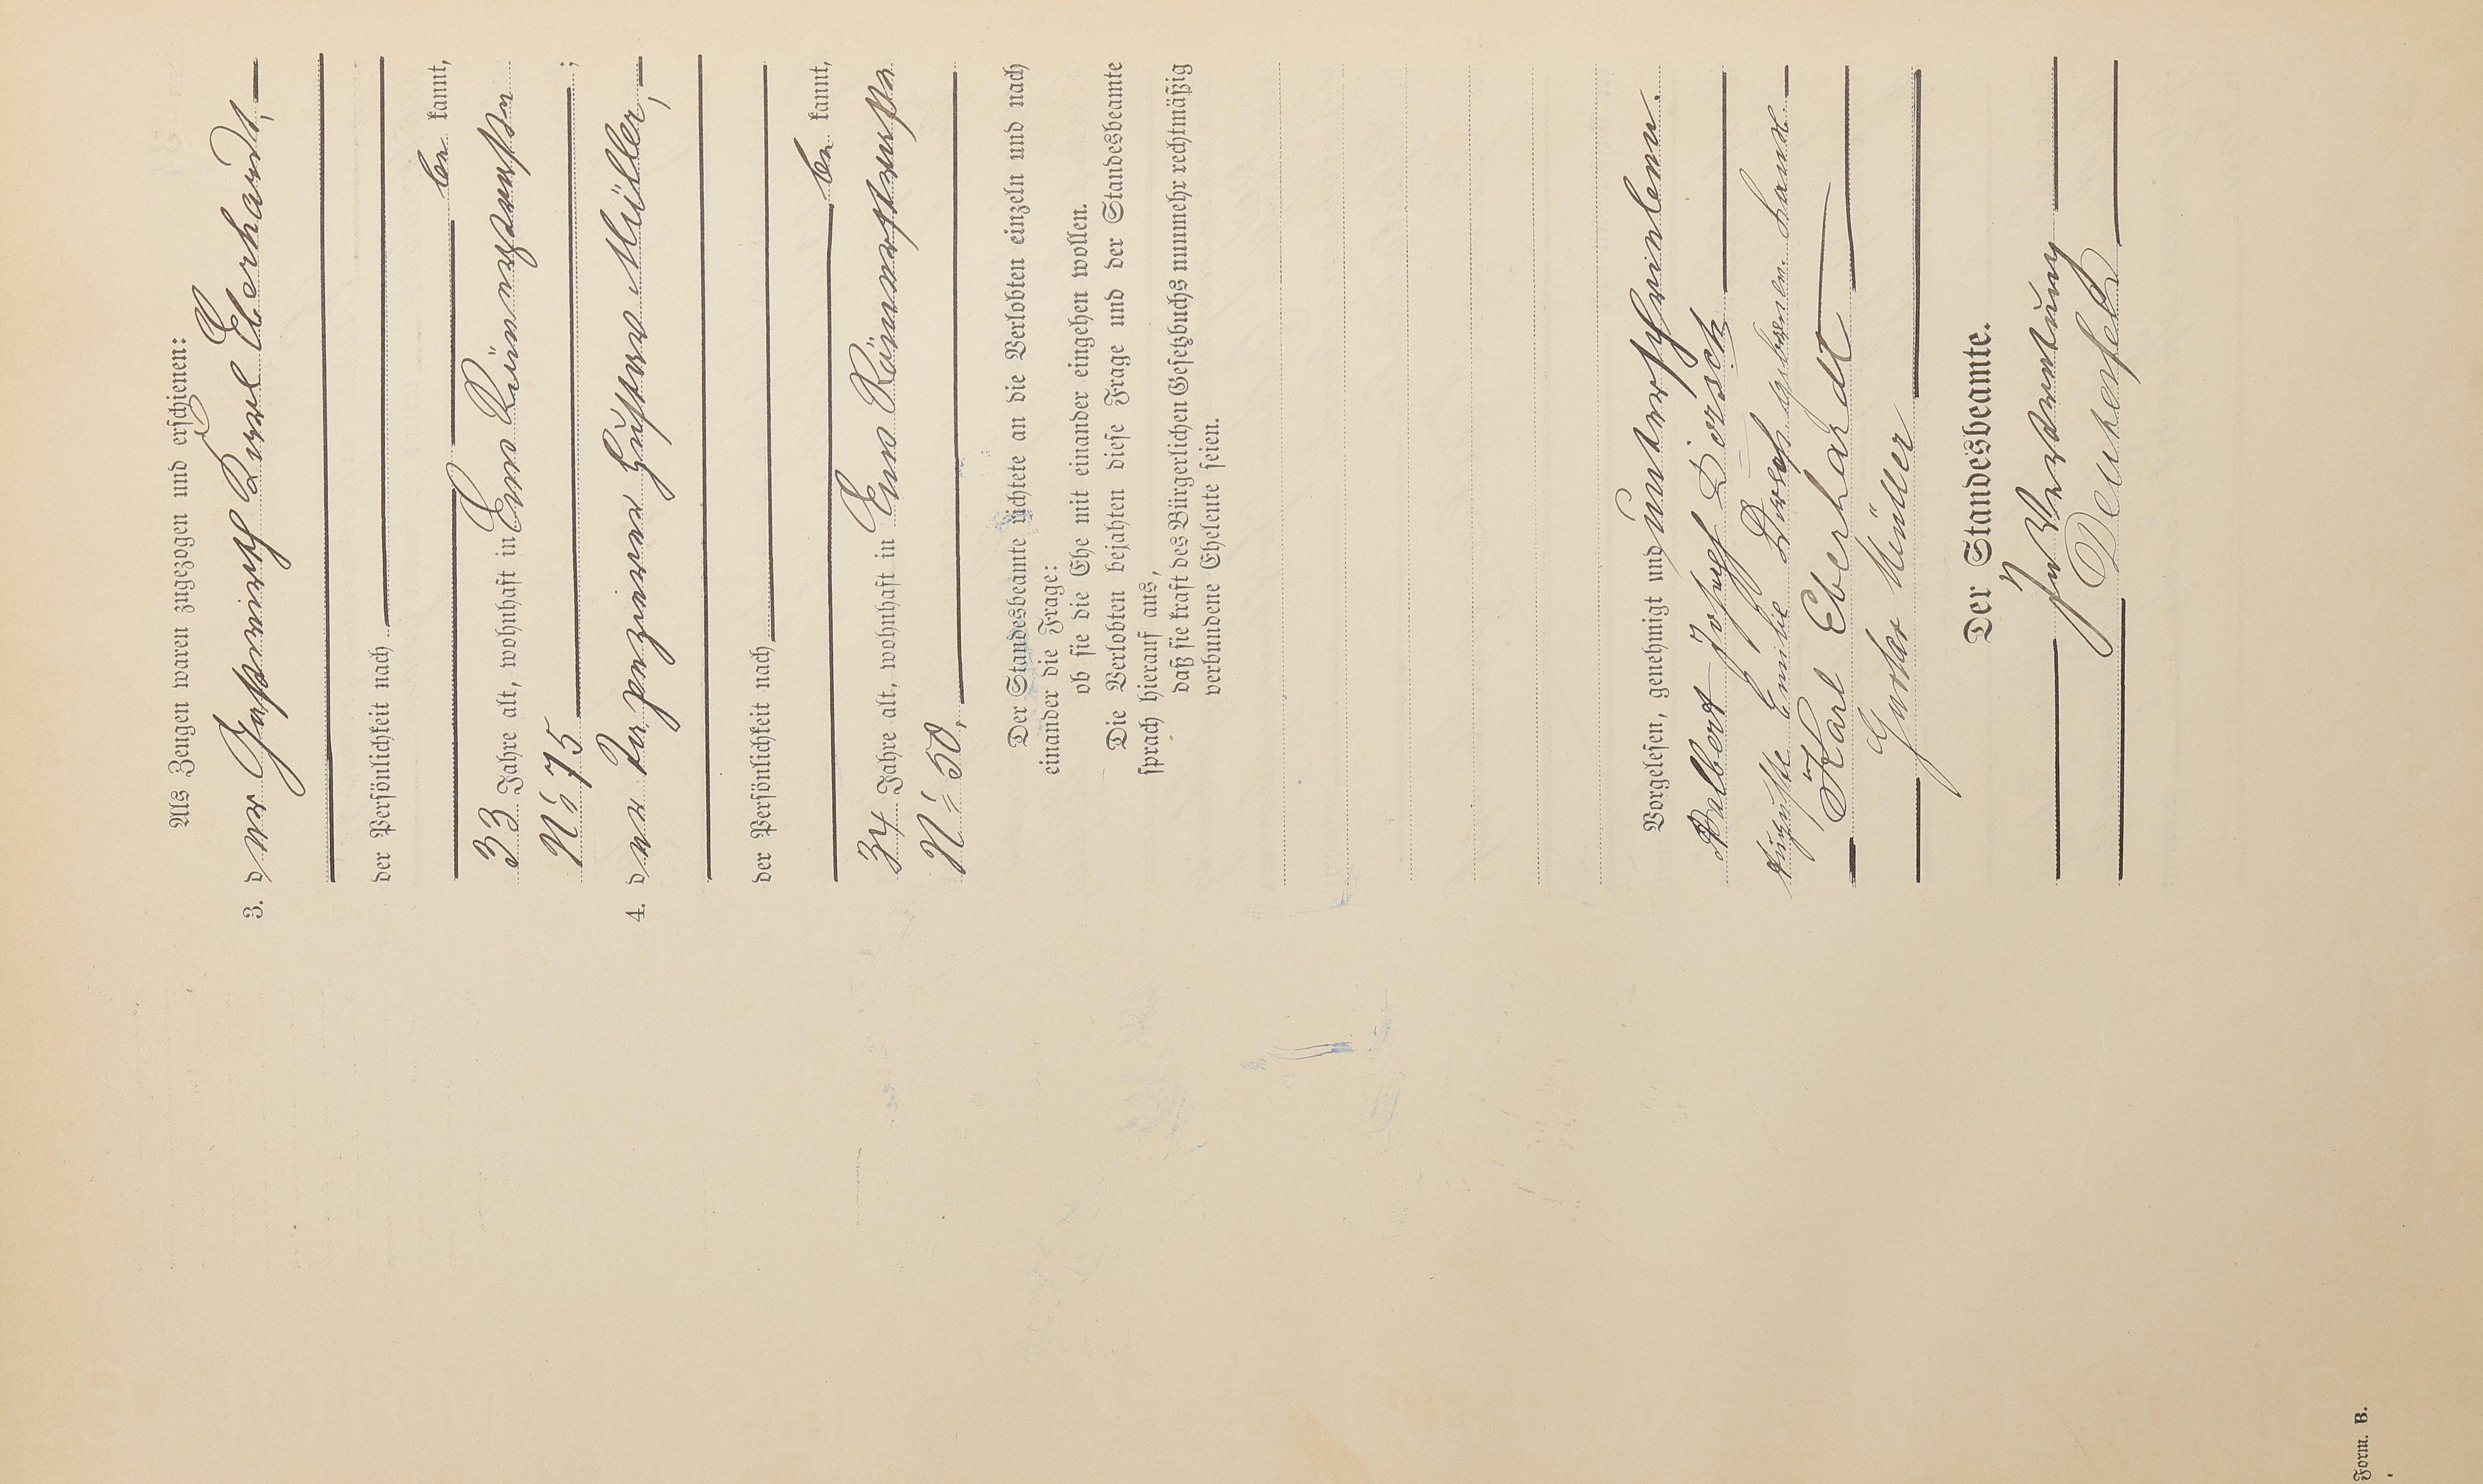 Als Zeugen waren zugezogen und erschienen:
3. der Gastwirth Karl Eberhardt,
der Persönlichkeit nach
be kannt,
33 Jahre alt, wohnhaft in Ems
N° 75 ;
4. der Gustav Müller,
der Persönlichkeit nach
be kannt,
34 Jahre alt, wohnhaft in Ems Römerstraße
N° 50,
Der Standesbeamte richtete an die Verlobten einzeln und nach
einander die Frage:
ob sie die Ehe mit einander eingehen wollen.
Die Verlobten bejahten diese Frage und der Standesbeamte
sprach hierauf aus,
daß sie kraft des Bürgerlichen Gesetzbuchs nunmehr rechtmäßig
verbundene Eheleute seien.
Vorgelesen, genehmigt und unterschrieben.
Albert Josef Dorsch
Auguste Emilie Dorsch geborene
Karl Eberhardt
Gustav Müller
Der Standesbeamte.
In Vertretung